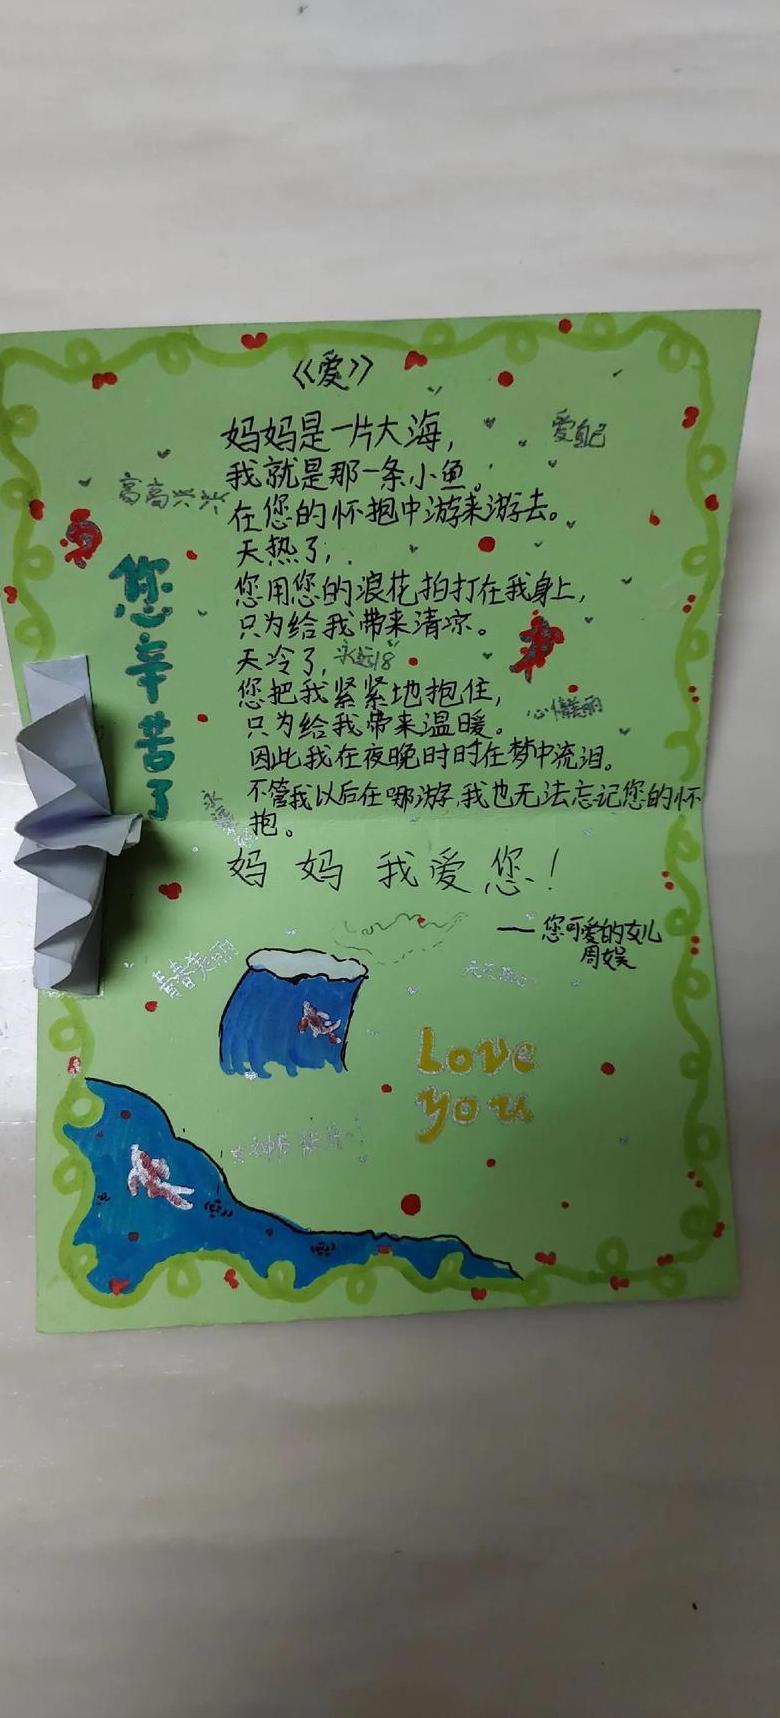 《爱》
妈妈是一片大海，
爱自己
我就是那一条小鱼。
高高兴兴
在您的怀抱中游来游去。
天热了，
您用您的浪花拍打在我身上，
只为给我带来清凉。
天冷了，
永远18
您把我紧紧地抱住，
心情美丽
只为给我带来温暖。
因此我在夜晚时时在梦中流泪。
不管我以后在哪游，我也无法忘记您的怀
抱。
您辛苦了
妈妈我爱您！
——您可爱的女儿
周娱
青春美丽
Love
you